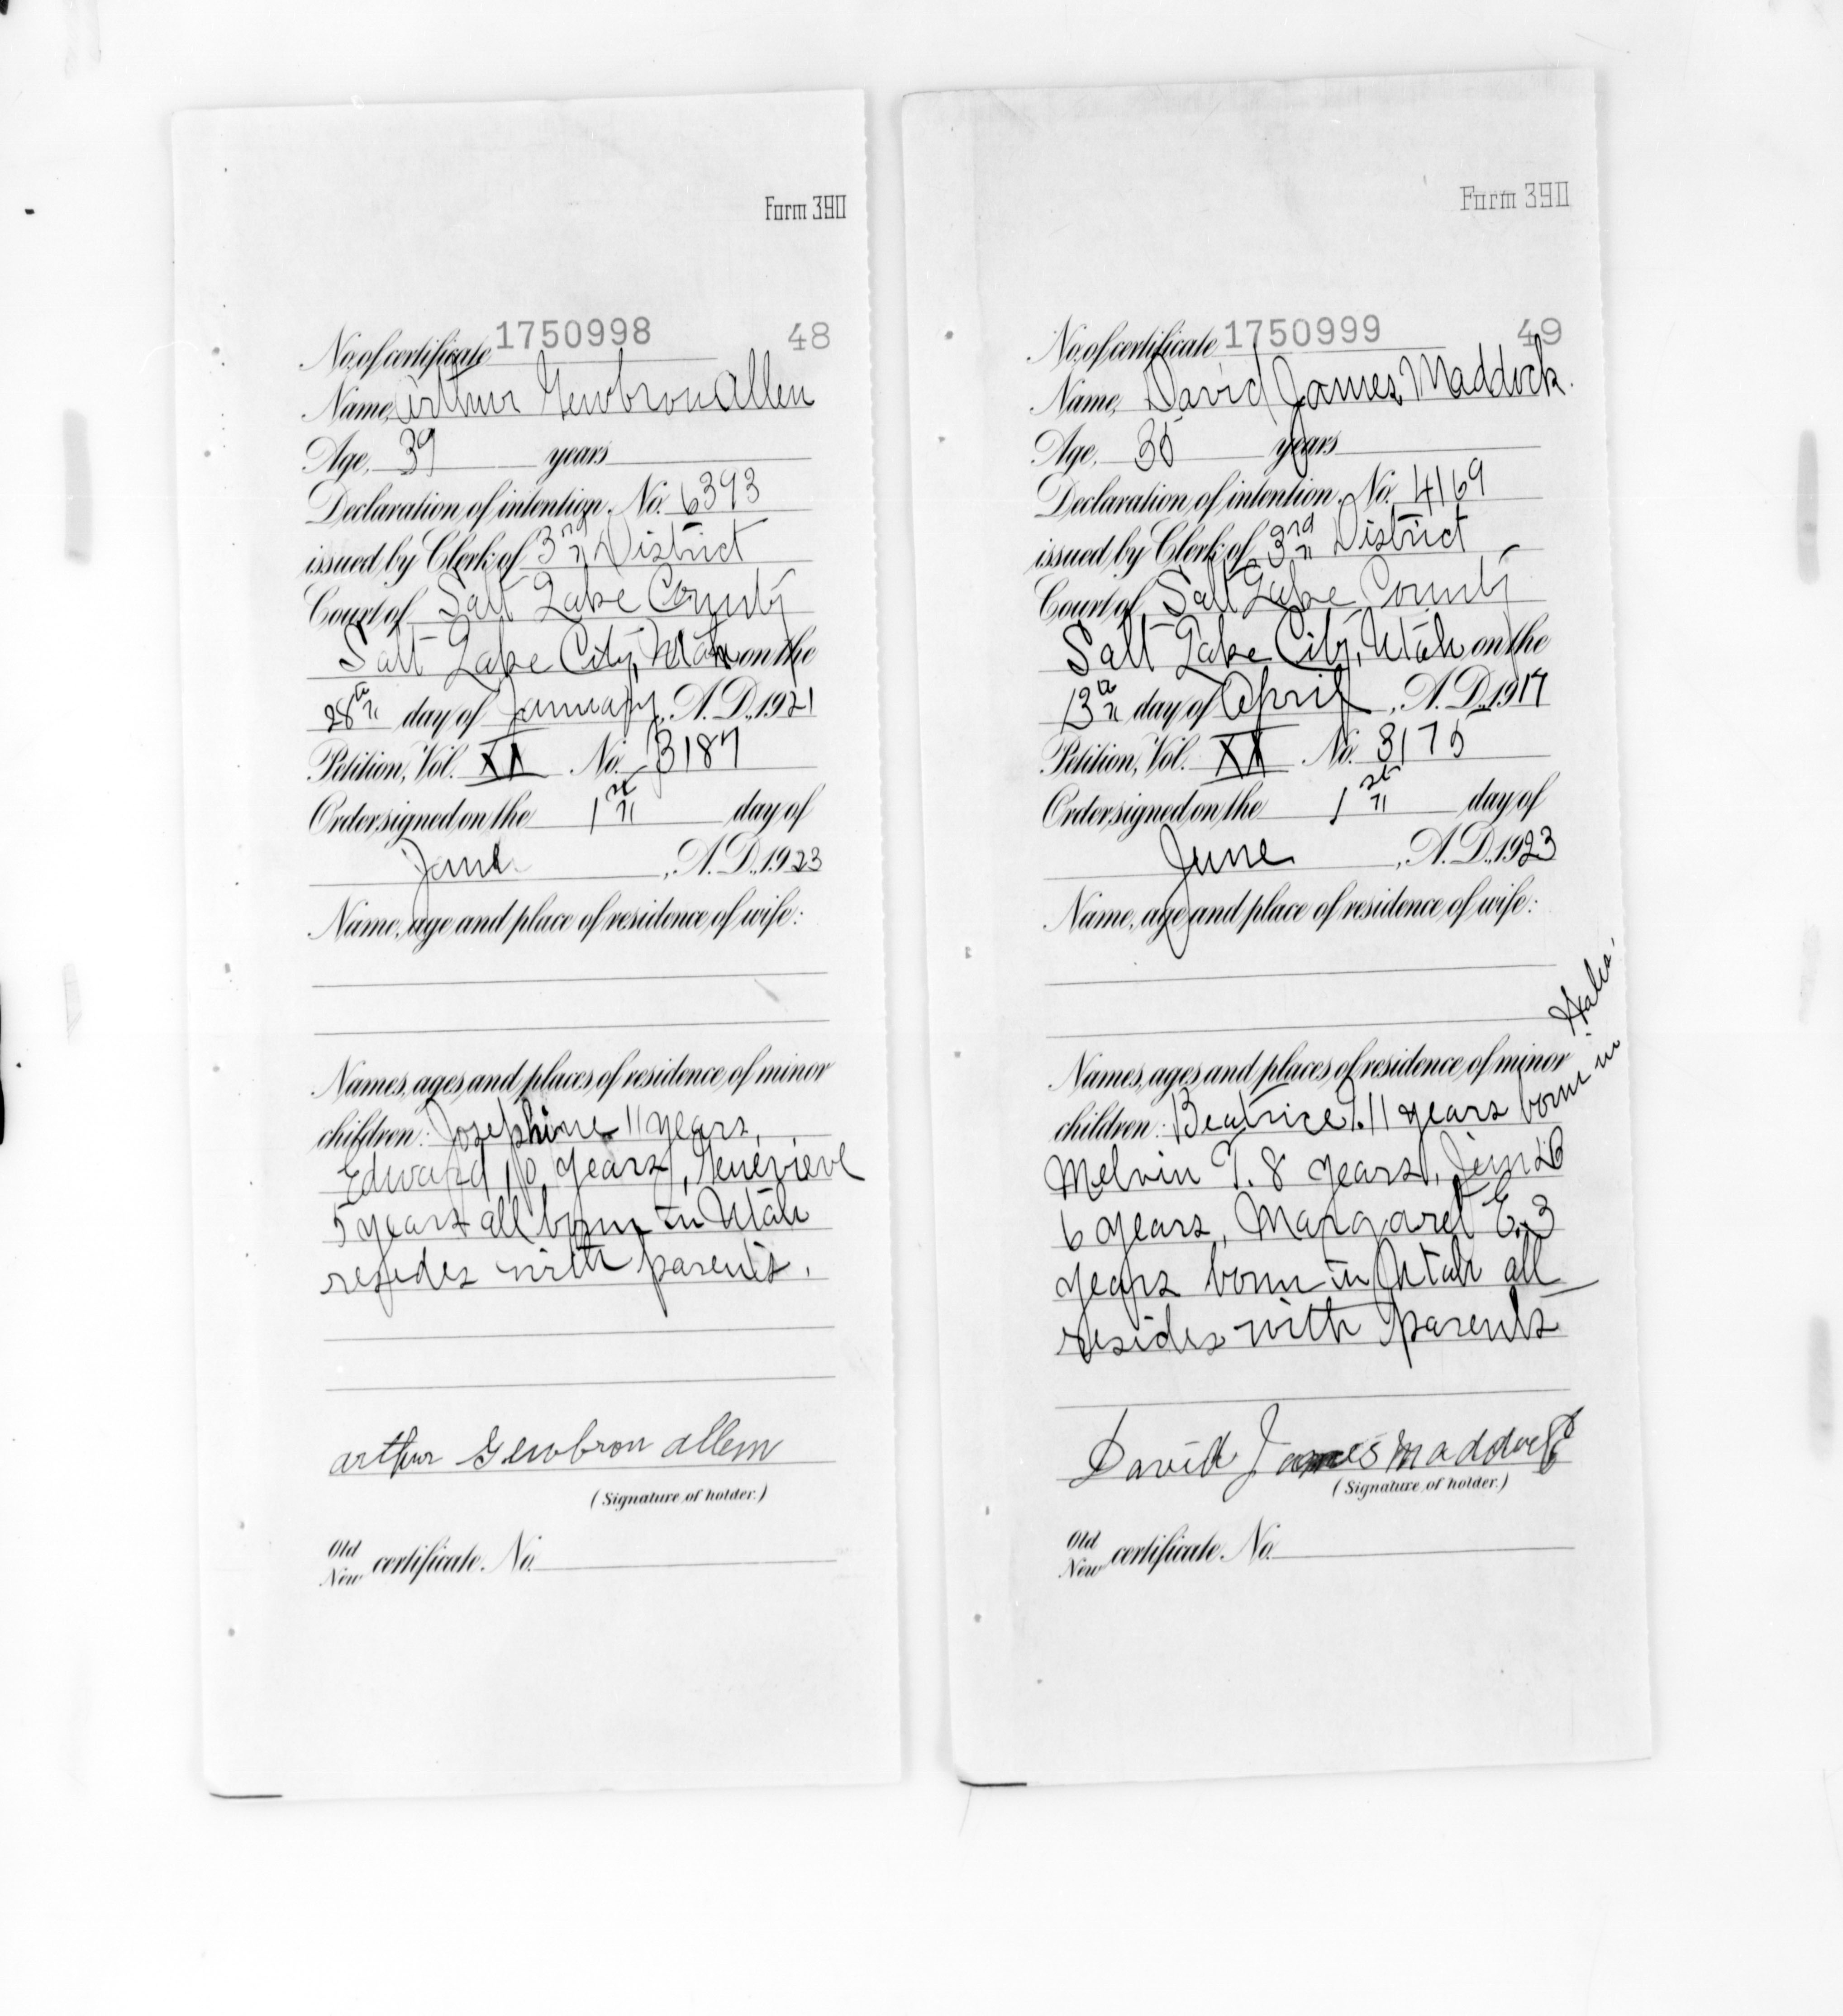 Form 390
No. of certificate 1750998 48
Name, Arthur Gewbron Allen
Age, 39 years
Declaration of intention, No. 6393
issued by Clerk of 3rd District
Court of Salt Lake County
Salt Lake City, Utah on the
28th day of January, A.D., 1921
Petition, Vol. XX No. 3187
Order signed on the 1st day of
June, A.D., 1923
Name, age and place of residence of wife:
Names, ages and places of residence of minor
children: Josephine 11 years,
Edward 10 years, Genevieve
5 years all born in Utah
resides with parents.
Arthur Gewbron Allen
(Signature of holder.)
Old
New certificate No.
Form 390
No. of certificate 1750999 49
Name, David James Maddock.
Age, 35 years
Declaration of intention, No. 4169
issued by Clerk of 3rd District
Court of Salt Lake County
Salt Lake City, Utah on the
13th day of April, A.D., 1917
Petition, Vol. XX No. 3175
Order signed on the 1st day of
June, A.D., 1923
Name, age and place of residence of wife:
Names, ages and places of residence of minor
children: Beatrice 11 years born in
Melvin T. 8 years,
6 years, Margaret E. 3
years born in Utah all
resides with parents
David James Maddock
(Signature of holder.)
Old
New certificate No.